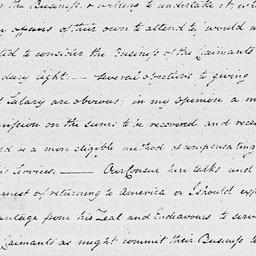 the Business, & willing to undertake it, wh
affairs of their own to attend to, would n
ted to consider the Business of the Claimants
dary light. — Several objections to giving
Salary are obvious; in my opinion a
mission on the sums to be recovered and rece
is a more eligible method of compensating
Services. — Our Consul here talks and
of returning to America or I should exp
antage from his Zeal and Endeavours to serve
Claimants as might commit their Business to